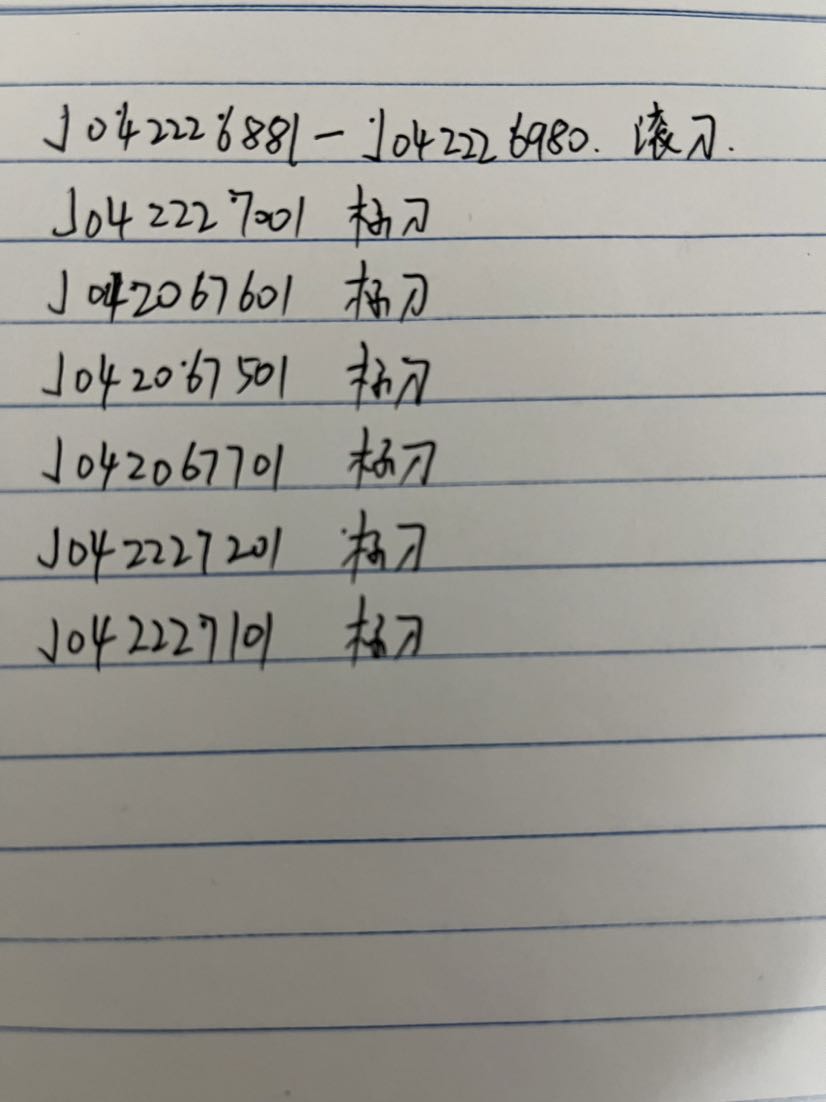 J042226881-J042226980. 滚刀.
J042227001 标刀
J042067601 标刀
J042067501 标刀
J042067701 标刀
J042227201 标刀
J042227101 标刀